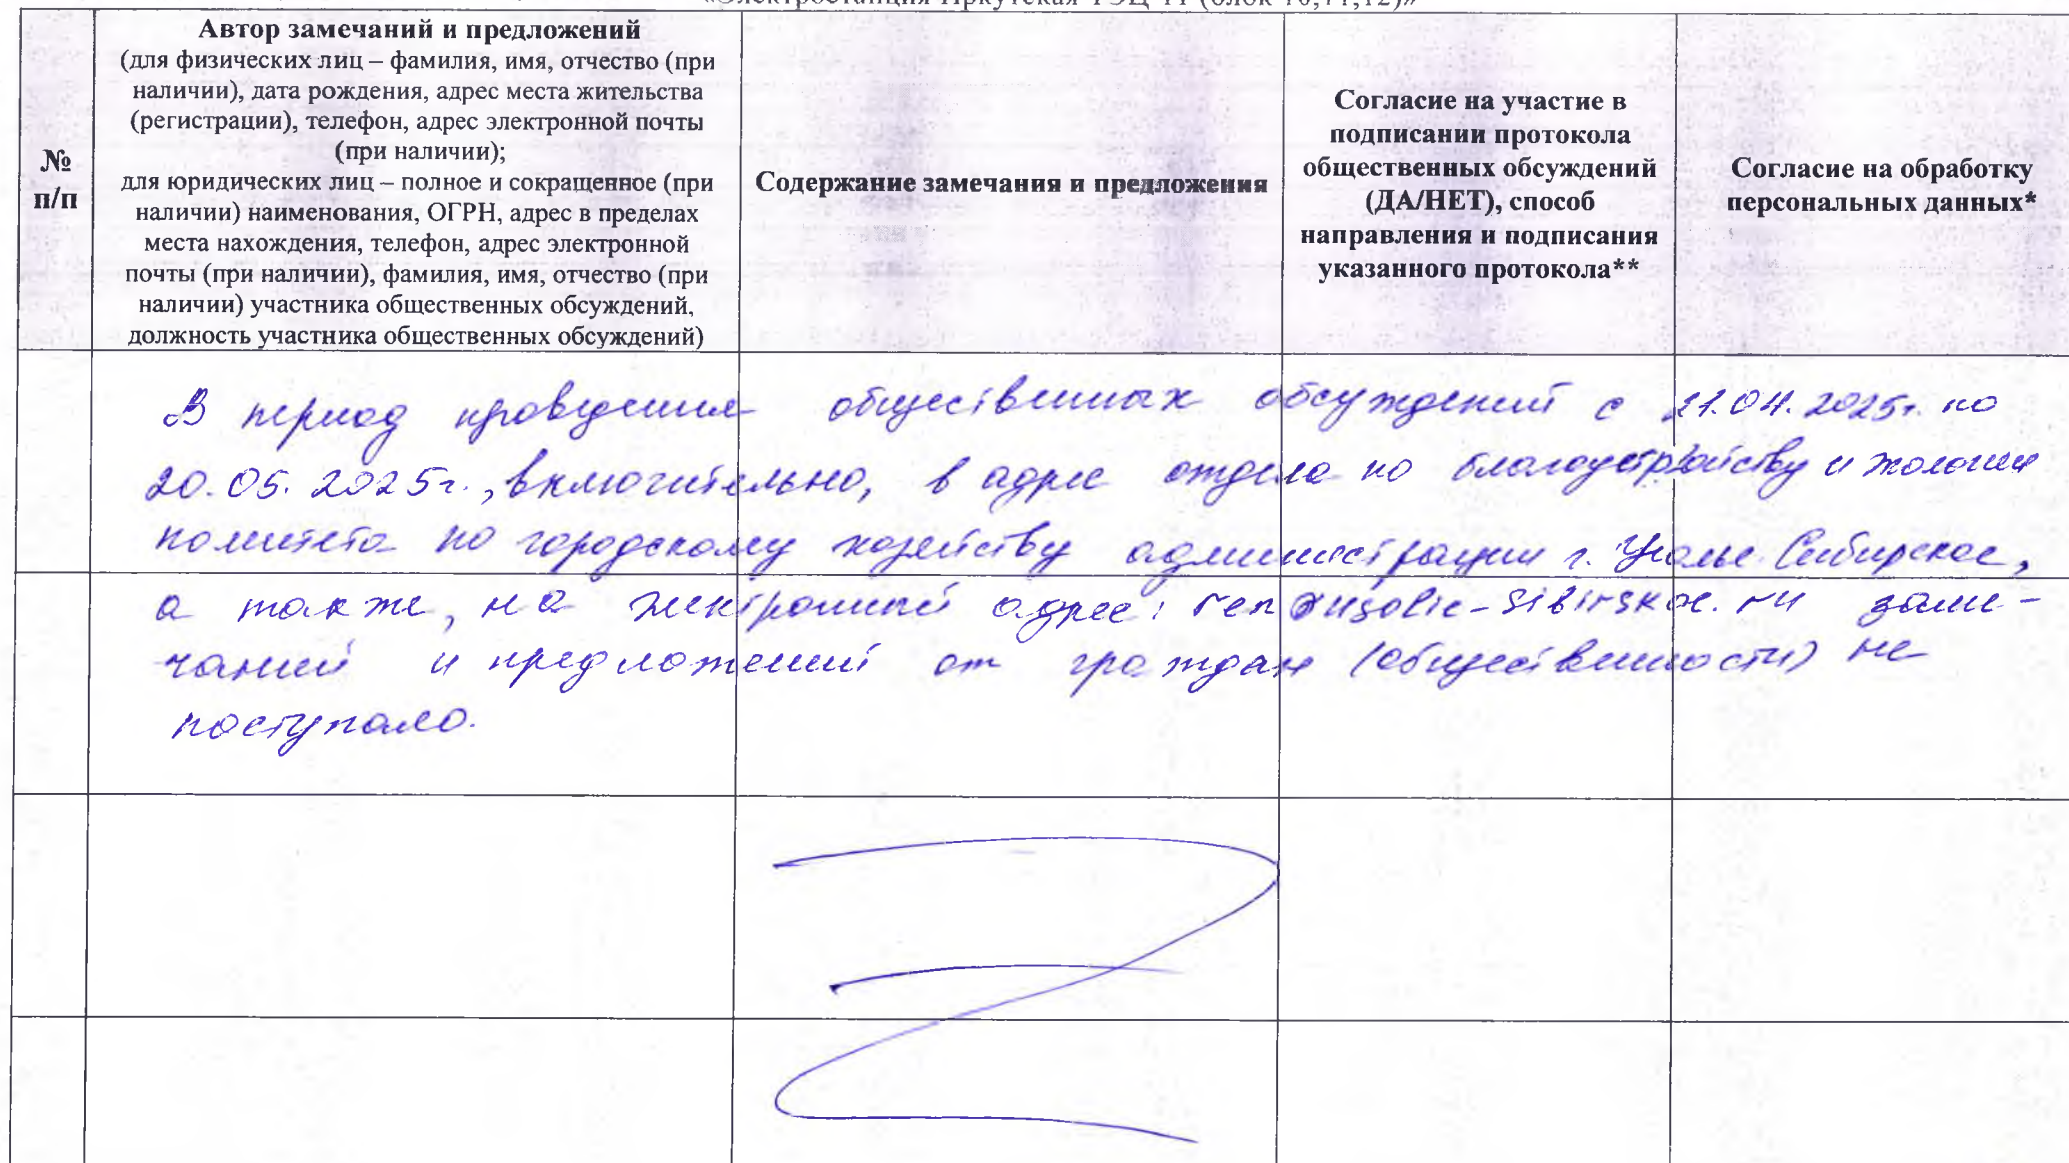 «Электростанция Иркутская ТЭЦ-11 (блок 10,11,12)»
№
п/п
Автор замечаний и предложений
(для физических лиц – фамилия, имя, отчество (при
наличии), дата рождения, адрес места жительства
(регистрации), телефон, адрес электронной почты
(при наличии);
для юридических лиц – полное и сокращенное (при
наличии) наименования, ОГРН, адрес в пределах
места нахождения, телефон, адрес электронной
почты (при наличии), фамилия, имя, отчество (при
наличии) участника общественных обсуждений,
должность участника общественных обсуждений)
Содержание замечания и предложения
Согласие на участие в
подписании протокола
общественных обсуждений
(ДА/НЕТ), способ
направления и подписания
указанного протокола**
Согласие на обработку
персональных данных*
В период проведения общественных обсуждений с 21.04.2025г. по
20.05.2025г., включительно, в адрес отдела по благоустройству и экологии
комитета по городскому хозяйству администрации г. Усолье-Сибирское,
а также, на электронный адрес: заме-
чаний и предложений от граждан (общественности) не
поступало.